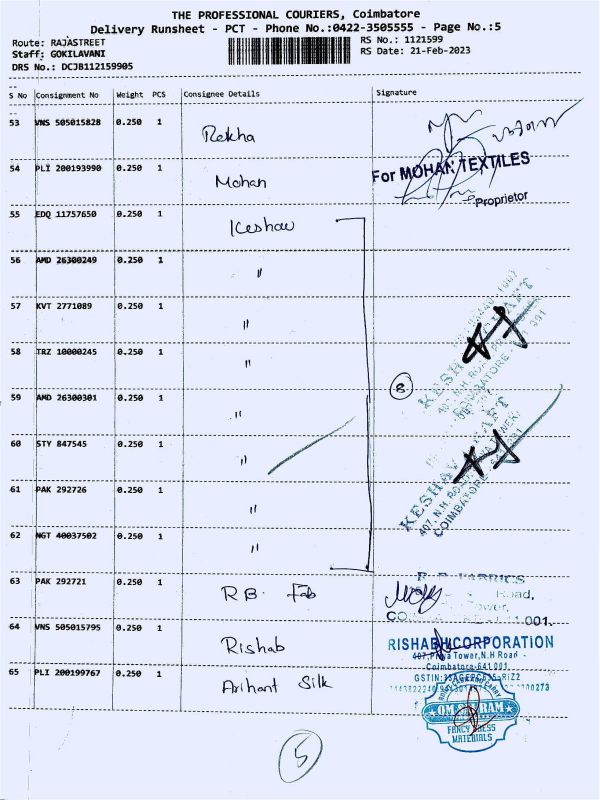 THE PROFESSIONAL COURIERS, Coimbatore
Delivery Runsheet - PCT - Phone No.:0422-3505555 - Page No.:5
Route: RAJASTREET
Staff: GOKILAVANI
DRS No.: DCJB112159905
RS No.: 1121599
RS Date: 21-Feb-2023
S No Consignment No Weight PCS Consignee Details Signature
53 VNS 505015828 0.250 1 Rekha
54 PLI 200193990 0.250 1 Mohan
For MOHAN TEXTILES
Proprietor
55 EDQ 11757650 0.250 1 Keshav
56 AMD 26300249 0.250 1 "
57 KVT 2771089 0.250 1 "
58 TRZ 10000245 0.250 1 "
59 AMD 26300301 0.250 1 "
8
60 STY 847545 0.250 1 "
61 PAK 292726 0.250 1 "
62 NGT 40037502 0.250 1 "
KESHAV
COIMBATORE
63 PAK 292721 0.250 1 R.B. Fab
Road,
Tower,
64 VNS 505015795 0.250 1 Rishab
RISHABH CORPORATION
407, Priya Tower, N.H Road -
Coimbatore-641 001
65 PLI 200199767 0.250 1 Arihant Silk
FANCY DRESS
MATERIALS
5